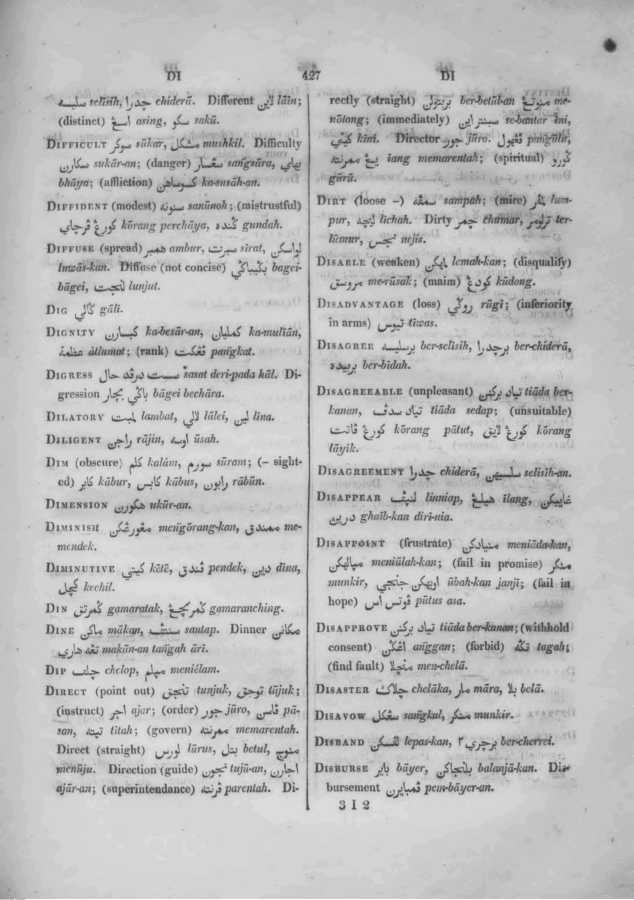 DI 427 DI
سليسه selisih, چدرا chiderā. Different لاين lāin;
(distinct) اسيڠ asing, سكو sakū.
DIFFICULT سوكر sūkar, مشكل mushkil. Difficulty
سكارن sukār-an; (danger) سڠسار sangsāra,
بهاي bhāya; (affliction) كسوساهن ka-susāh-an.
DIFFIDENT (modest) سنونه sanūnoh; (mistrustful)
كورڠ فرچاي kōrang perchāya, گنده gundah.
DIFFUSE (spread) همبر ambur, سيرت sīrat,
لواسكن luwās-kan. Diffuse (not concise) بڬيباڬي bagei-
bāgei, لنجت lunjut.
DIG گالي gāli.
DIGNITY كبسارن ka-besār-an, كمليان ka-muliān,
عظمة ätlumat; (rank) ڤڠكت pangkat.
DIGRESS سست درڤد حال sasat deri-pada hāl. Di-
gression باڬي بچار bāgei bechāra.
DILATORY لمبت lambat, لالي lālei, لين lina.
DILIGENT راجن rājin, اوسه ūsah.
DIM (obscure) كلم kalam, سورم sūram; (– sight-
ed) كابر kābur, كابس kābus, رابون rābūn.
DIMENSION هكورن ukūr-an.
DIMINISH مڠورڠكن mengōrang-kan, ممندق me-
mendek.
DIMINUTIVE كيتي kītī, ڤندق pendek, دين dina,
كچيل kechil.
DIN گمرتق gamaratak, گمرنچڠ gamaranching.
DINE ماكن mākan, سنتڤ santap. Dinner مكانن
تڠه هاري makān-an tangah āri.
DIP چلڤ chelop, ميلم meniëlam.
DIRECT (point out) تنجق tunjuk, توجق tūjuk;
(instruct) اجر ajar; (order) جورو jūro, ڤاسن pā-
san, تيته titah; (govern) مرنته memarentah.
Direct (straight) لورس lūrus, بتل betul, منوج
menūju. Direction (guide) توجون tujū-an, اجارن
ajār-an; (superintendance) ڤرنته parentah. Di-
rectly (straight) بربتولن ber-betūl-an منوتڠ me-
nōtong; (immediately) سبنتر اين se-bantar īni,
كيني kīni. Director جورو jūro. ڤڠهولو pangūlū,
يڠ ممرنته iang memarentah; (spiritual) گورو
gūrū.
DIRT (loose –) سمڤه sampah; (mire) لمڤر lum-
pur, ليچه lichah. Dirty چمر chāmar, ترلومر ter-
lūmur, نجس nejis.
DISABLE (weaken) لمهكن lemah-kan; (disqualify)
مروسق me-rūsak; (maim) كودڠ kūdong.
DISADVANTAGE (loss) روڬي rūgi; (inferiority
in arms) تيوس tīwas.
DISAGREE برسليسه ber-selīsih, برچدرا ber-chiderā,
بربيده ber-bidah.
DISAGREEABLE (unpleasant) تياد بركنن tiāda ber-
kanan, تياد سدڤ tiāda sedap; (unsuitable)
كورڠ ڤاتت kōrang pātut, كورڠ لايق kōrang
lāyik.
DISAGREEMENT چدرا chiderā, سليسيهن selisih-an.
DISAPPEAR لنيڤ linniap, هيلڠ īlang, غايبكن
درين ghaïb-kan diri-nia.
DISAPPOINT (frustrate) منيادكن meniāda-kan,
ميالهكن meniūlah-kan; (fail in promise) منكر
munkir, اوبهكن جنجي ūbah-kan janji; (fail in
hope) ڤوتس اس pūtus asa.
DISAPPROVE تياد بركنن tiāda ber-kanan; (withhold
consent) اڠڬن anggan; (forbid) تڬه tagah;
(find fault) منچلا men-chelā.
DISASTER چلاك chelāka, مار māra, بلا belā.
DISAVOW سڠكل sangkul, منكر munkir.
DISBAND لڤسكن lepas-kan, برچري٢ ber-cherrei.
DISBURSE باير bāyer, بلنجاكن balanjā-kan. Dis-
bursement ڤمبايرن pem-bāyer-an.
3 I 2